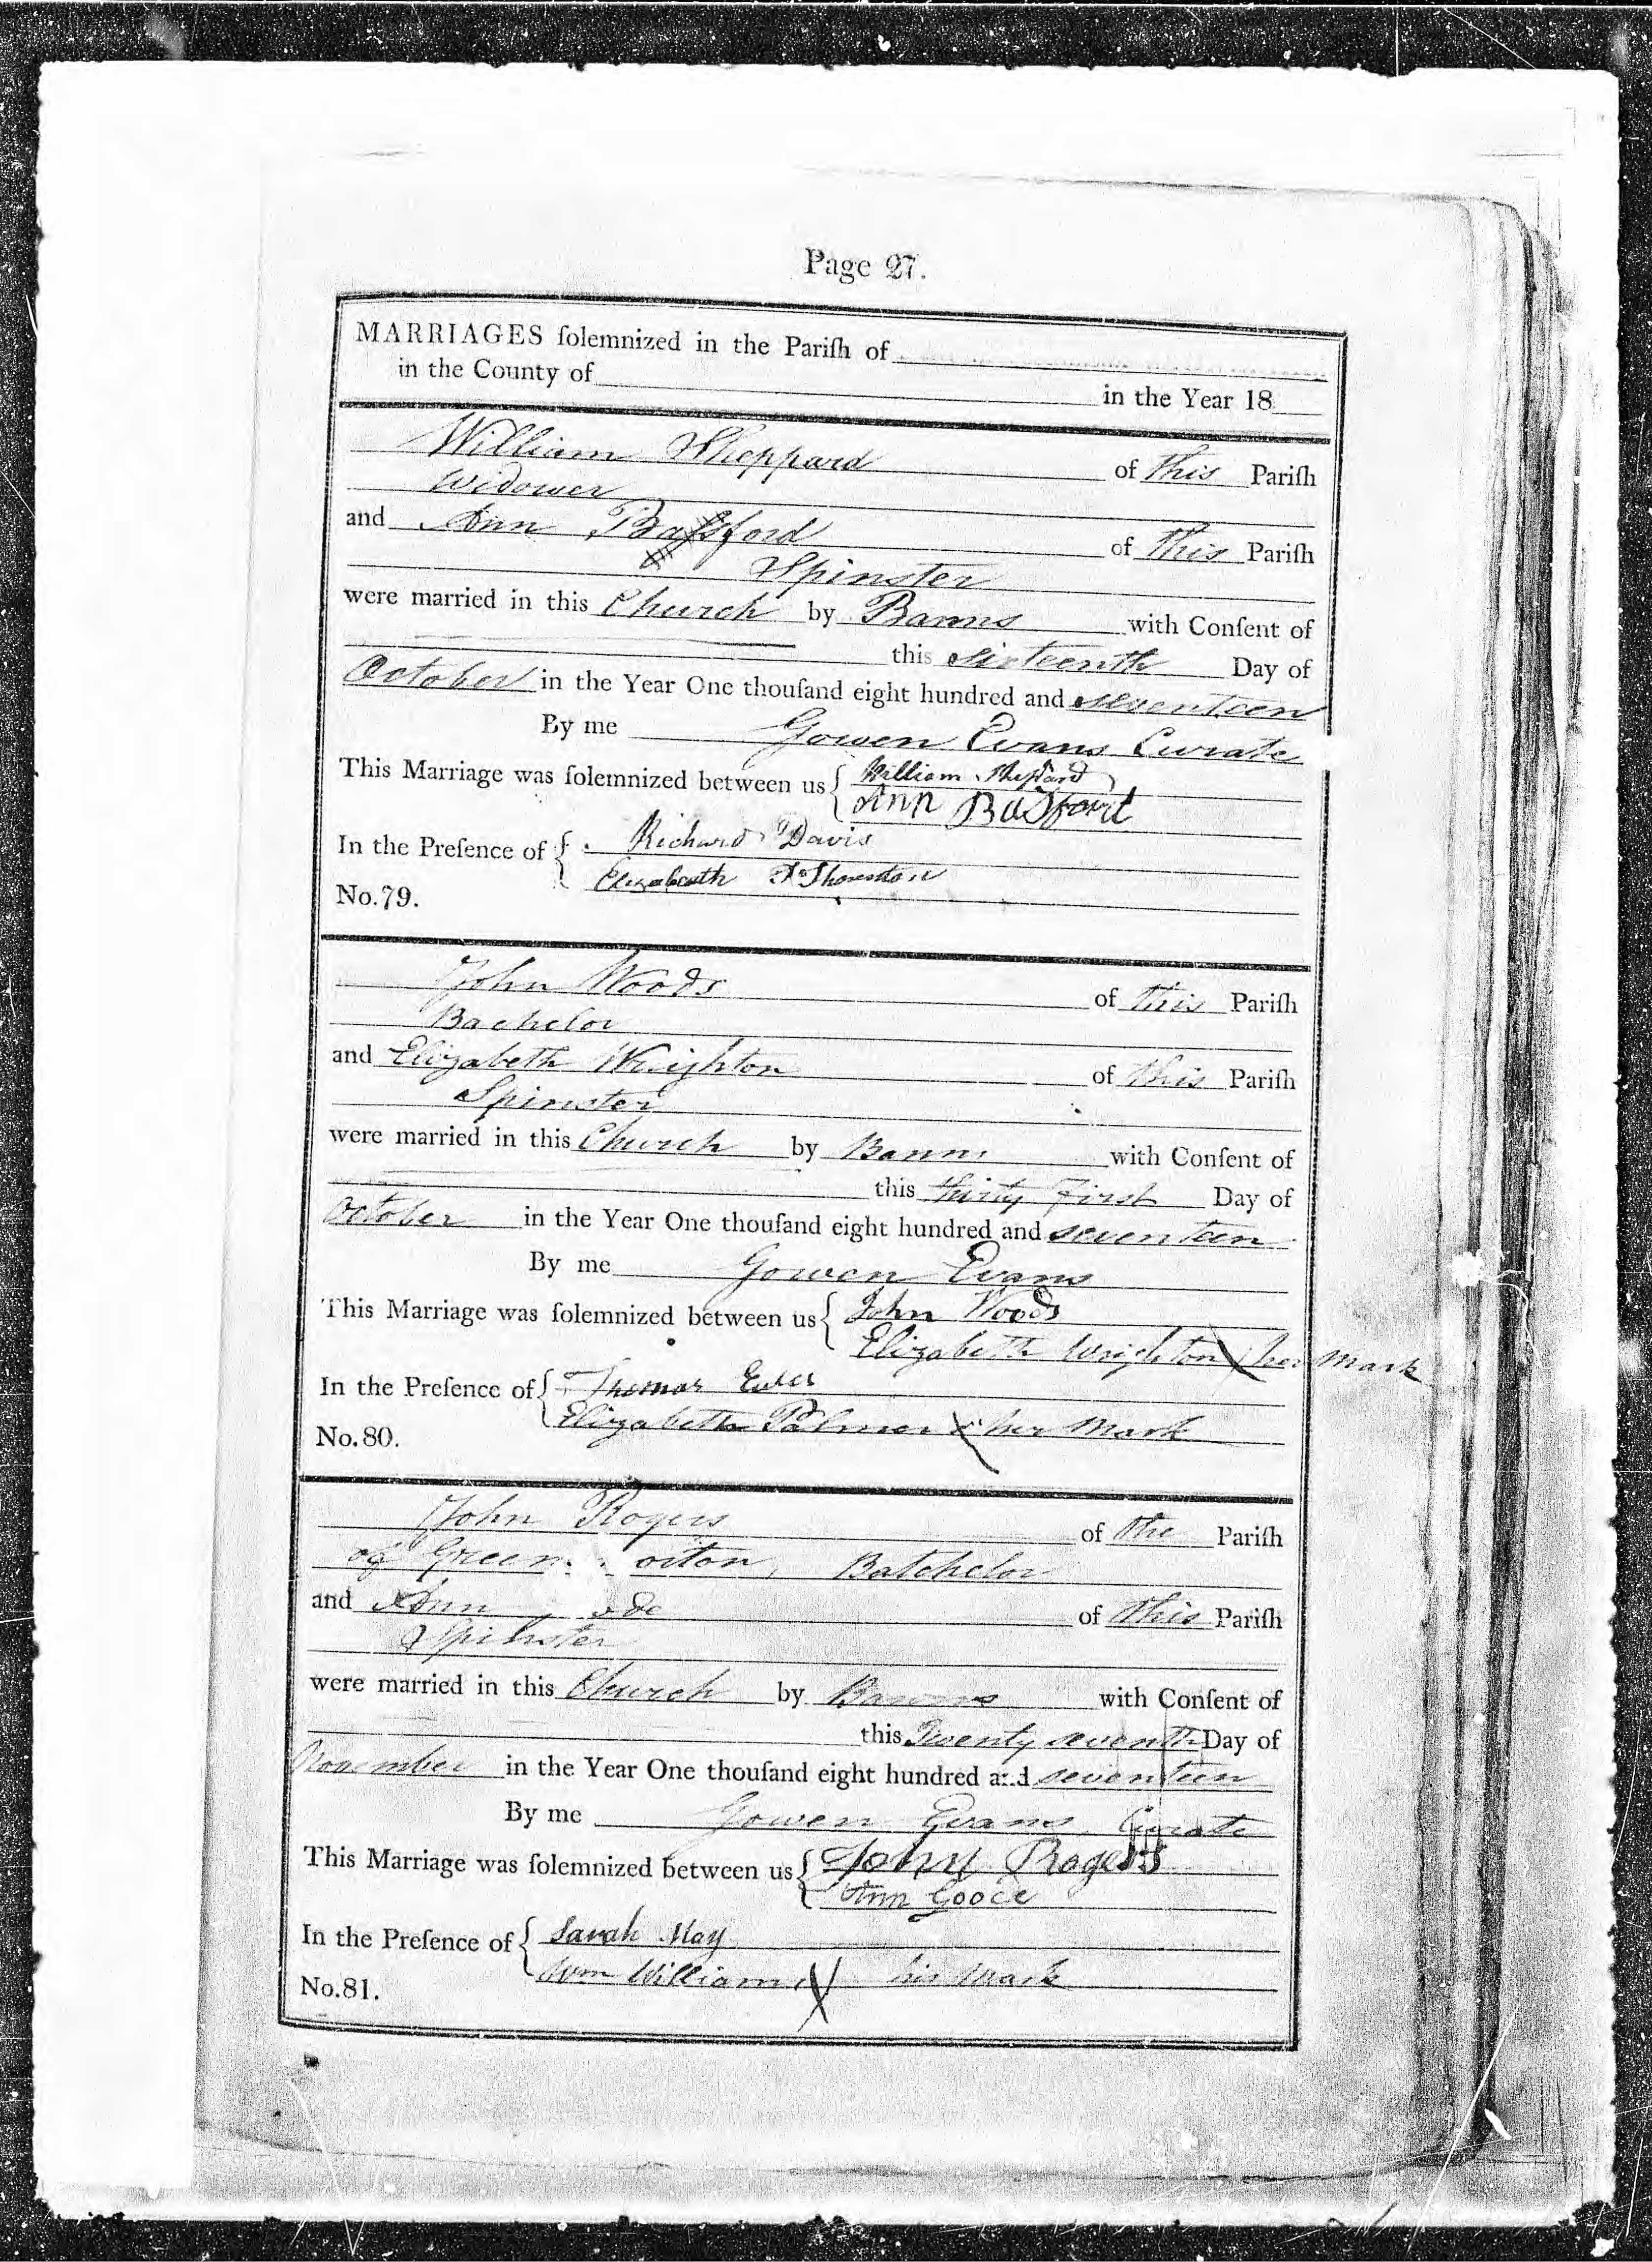 Page 27.
MARRIAGES ſolemnized in the Pariſh of
in the County of in the Year 18
William Sheppard of this Pariſh
Widower
and Ann Basford of this Pariſh
Spinster
were married in this Church by Banns with Conſent of
this sixteenth Day of
October in the Year One thouſand eight hundred and seventeen
By me Gowen Evans Curate
This Marriage was ſolemnized between us { William Sheppard
Ann Basford
In the Preſence of { Richard Davis
Elizabeath
No.79.
John Woods of this Pariſh
Bachelor
and Elizabeth Wrighton of this Pariſh
Spinster
were married in this Church by Banns with Conſent of
this thirty First Day of
October in the Year One thouſand eight hundred and seventeen
By me Gowen Evans
This Marriage was ſolemnized between us { John Woods
Elizabeth Wrighton X her Mark
In the Preſence of { Thomas
Elizabeth Palmer X her Mark
No.80.
John Rogers of the Pariſh
of Green orton, Batchelor
and Ann of this Pariſh
Spinster
were married in this Church by Banns with Conſent of
this Twenty seventh Day of
November in the Year One thouſand eight hundred and seventeen
By me Gowen Evans Curate
This Marriage was ſolemnized between us { John Rogers
Ann Goode
In the Preſence of { Sarah May
Wm Williams X his Mark
No.81.